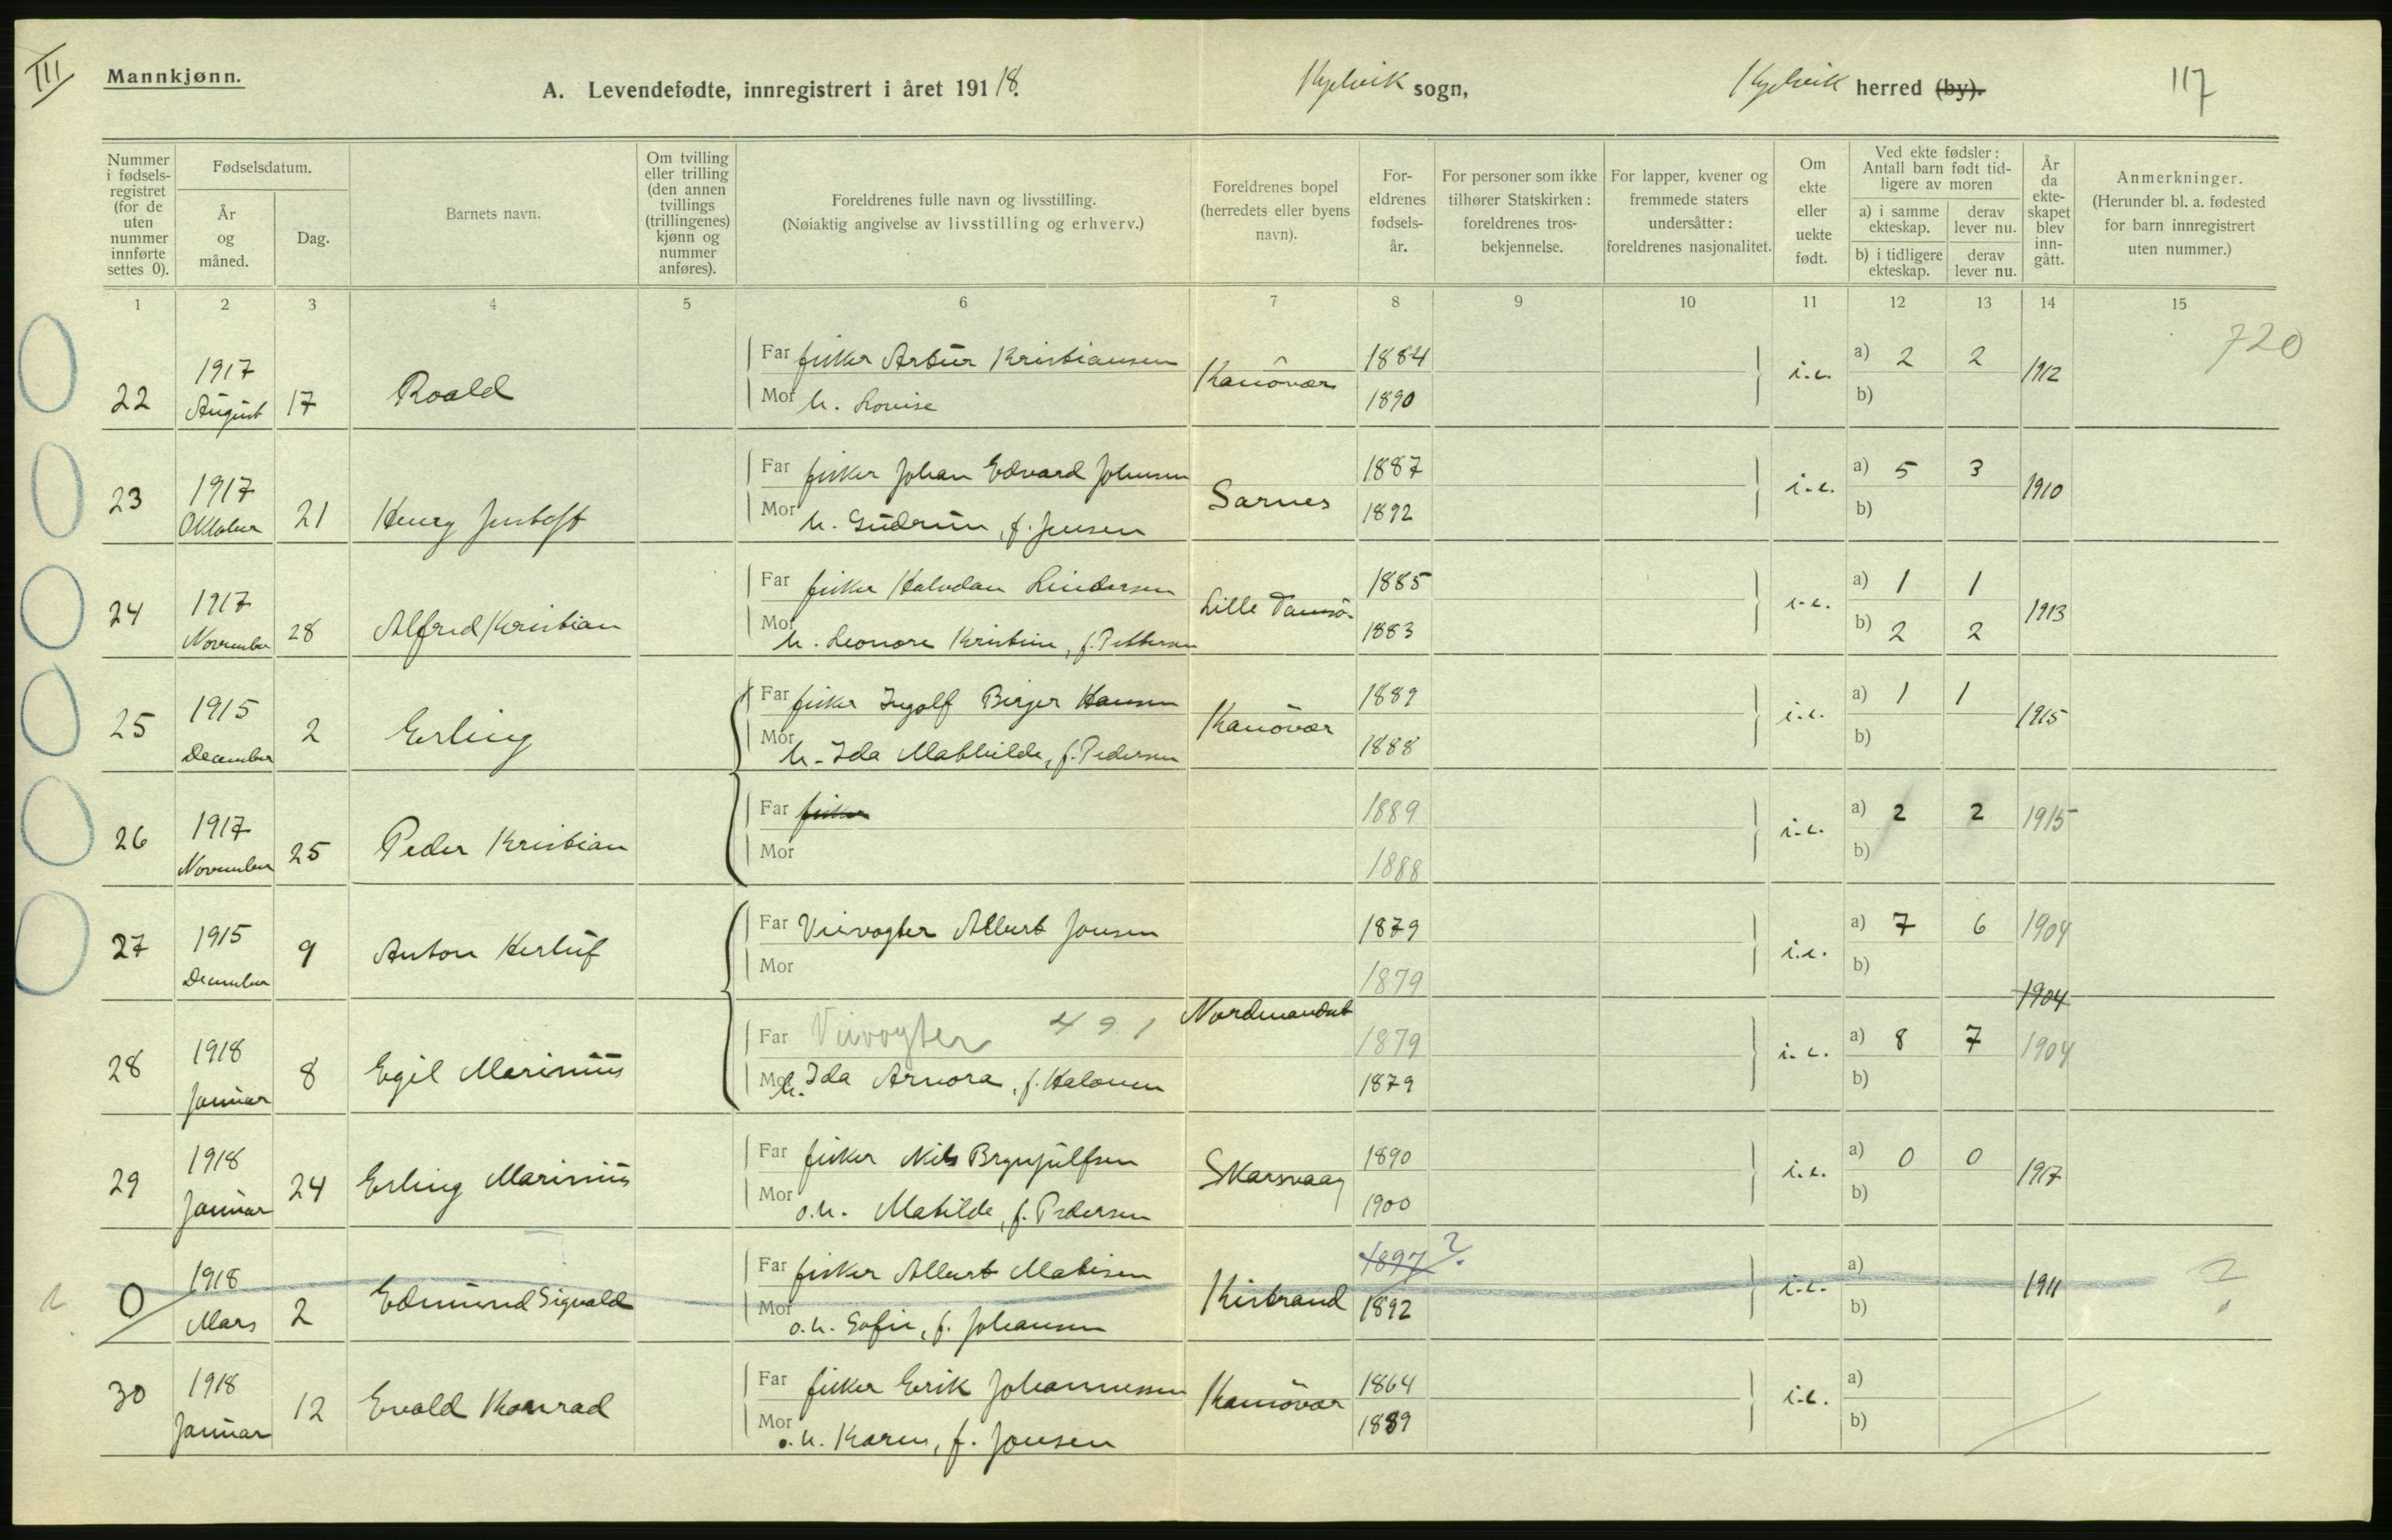 III
Mannkjønn.
A. Levendefødte, innregistrert i året 1918.
Kjelvik sogn,
Kjelvik herred (by).
117
Nummer i fødsels-registret (for de uten nummer innførte settes 0).
Fødselsdatum.
År og måned.
Dag.
Barnets navn.
Om tvilling eller trilling (den annen tvillings (trillingenes) kjønn og nummer anføres).
Foreldrenes fulle navn og livsstilling.
(Nøiaktig angivelse av livsstilling og erhverv.)
Foreldrenes bopel (herredets eller byens navn).
For-eldrenes fødsels-år.
For personer som ikke tilhører Statskirken: foreldrenes tros-bekjennelse.
For lapper, kvener og fremmede staters undersåtter: foreldrenes nasjonalitet.
Om ekte eller uekte født.
Ved ekte fødsler: Antall barn født tid-ligere av moren
a) i samme ekteskap.
derav lever nu.
b) i tidligere ekteskap.
derav lever nu.
År da ekte-skapet blev inn-gått.
Anmerkninger.
(Herunder bl. a. fødested for barn innregistrert uten nummer.)
1 2 3 4 5 6 7 8 9 10 11 12 13 14 15
720
22 1917 August 17 Roald
Far fisker Artur Kristiansen Kamøvær 1884 i.e. a) 2 2 1912
Mor h. Lovise 1890 b)
23 1917 Oktober 21 Henry Justoft
Far fisker Johan Edvard Johnsen Sarnes 1887 i.e. a) 5 3 1910
Mor h. Gudrun, f. Jensen 1892 b)
24 1917 November 28 Alfred Kristian
Far fisker Halvdan Lindersen Lille Tamsø 1885 i.e. a) 1 1 1913
Mor h. Leonore Kristine, f. Pettersen 1883 b) 2 2
25 1915 December 2 Erling
Far fisker Ingolf Birger Hansen Kamøvær 1889 i.e. a) 1 1 1915
Mor h. Ida Mathilde, f. Pedersen 1888 b)
26 1917 November 25 Peder Kristian
Far fisker 1889 i.e. a) 2 2 1915
Mor 1888 b)
27 1915 December 9 Anton Herluf
Far Viivogter Albert Jonsen 1879 i.e. a) 7 6 1904
Mor 1879 b)
1904
28 1918 Januar 8 Egil Marinius
Far Viivogter 491 Nordmandset 1879 i.e. a) 8 7 1904
Mor h. Ida Arnora, f. Halonen 1879 b)
29 1918 Januar 24 Erling Marinius
Far fisker Nils Brynjulfsen Skarsvaag 1890 i.e. a) 0 0 1917
Mor o.h. Matilde, f. Pedersen 1900 b)
0 1918 Mars 2 Edmund Sigvald
Far fisker Albert Matisen Kistrand 1897 ? i.e. a) 1911 ?
Mor o.h. Sofie, f. Johansen 1892 b)
30 1918 Januar 12 Evald Konrad
Far fisker Erik Johannessen Kamøvær 1864 i.e. a)
Mor o.h. Karen, f. Jonsen 1889 b)